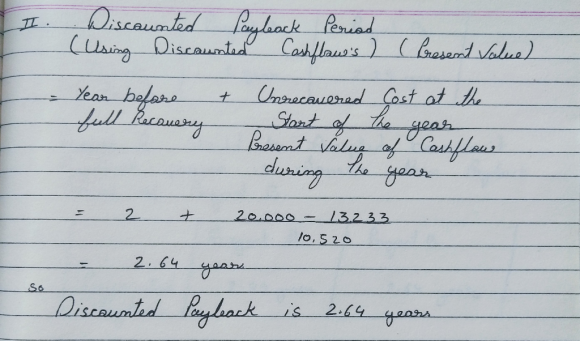 II. Discounted Payback Period
(Using Discounted Cashflow's) (Present Value)
= Year before + Unrecovered Cost at the
full Recovery Start of the year
Present Value of Cashflow
during the year
= 2 + 20.000 - 13233
10.520
= 2.64 year
so
Discounted Payback is 2.64 years